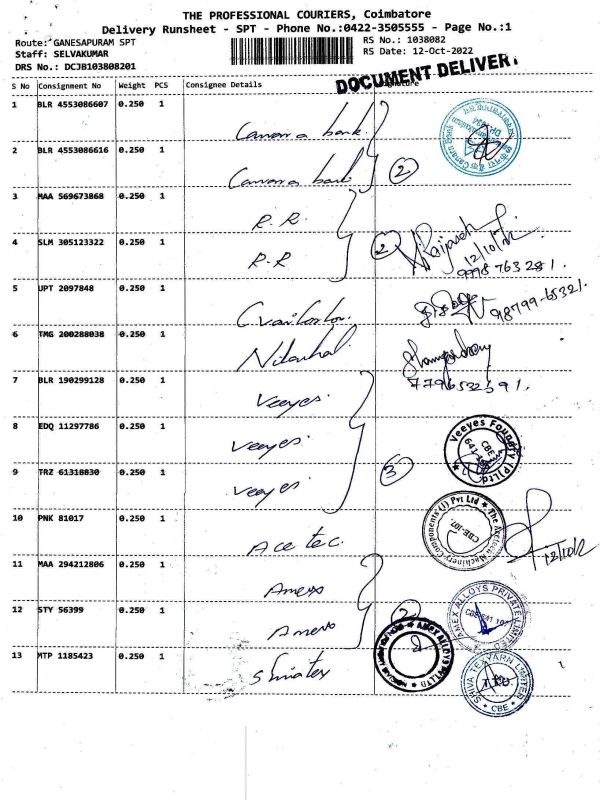 THE PROFESSIONAL COURIERS, Coimbatore
Delivery Runsheet - SPT - Phone No.:0422-3505555 - Page No.:1
Route: GANESAPURAM SPT RS No.: 1038082
Staff: SELVAKUMAR RS Date: 12-Oct-2022
DRS No.: DCJB103808201
DOCUMENT DELIVER
S No Consignment No Weight PCS Consignee Details
1 BLR 4553086607 0.250 1 Canara bank
2 BLR 4553086616 0.250 1 Canara bank 2
3 MAA 569673868 0.250 1 R.R.
4 SLM 305123322 0.250 1 R.R 2
12/10/22
9798763281.
5 UPT 2097848 0.250 1 98799-65321
6 TMG 200288038 0.250 1
7796532591.
7 BLR 190299128 0.250 1 Veeyes.
8 EDQ 11297786 0.250 1 Veeyes.
Veeyes Foundry (P) Ltd
CBE
641
9 TRZ 61318830 0.250 1 Veeyes. 3
10 PNK 81017 0.250 1 Ace tec.
Machinery Components (I) Pvt Ltd
CBE-107.
12/10/22
11 MAA 294212806 0.250 1 Amexs
12 STY 56399 0.250 1 Amexs 2
AMEX ALLOYS PRIVATE LIMITED
AMEX ALLOYS PVT LTD
13 MTP 1185423 0.250 1 Shivatex
SHIVA TEXYARN LIMITED
CBE